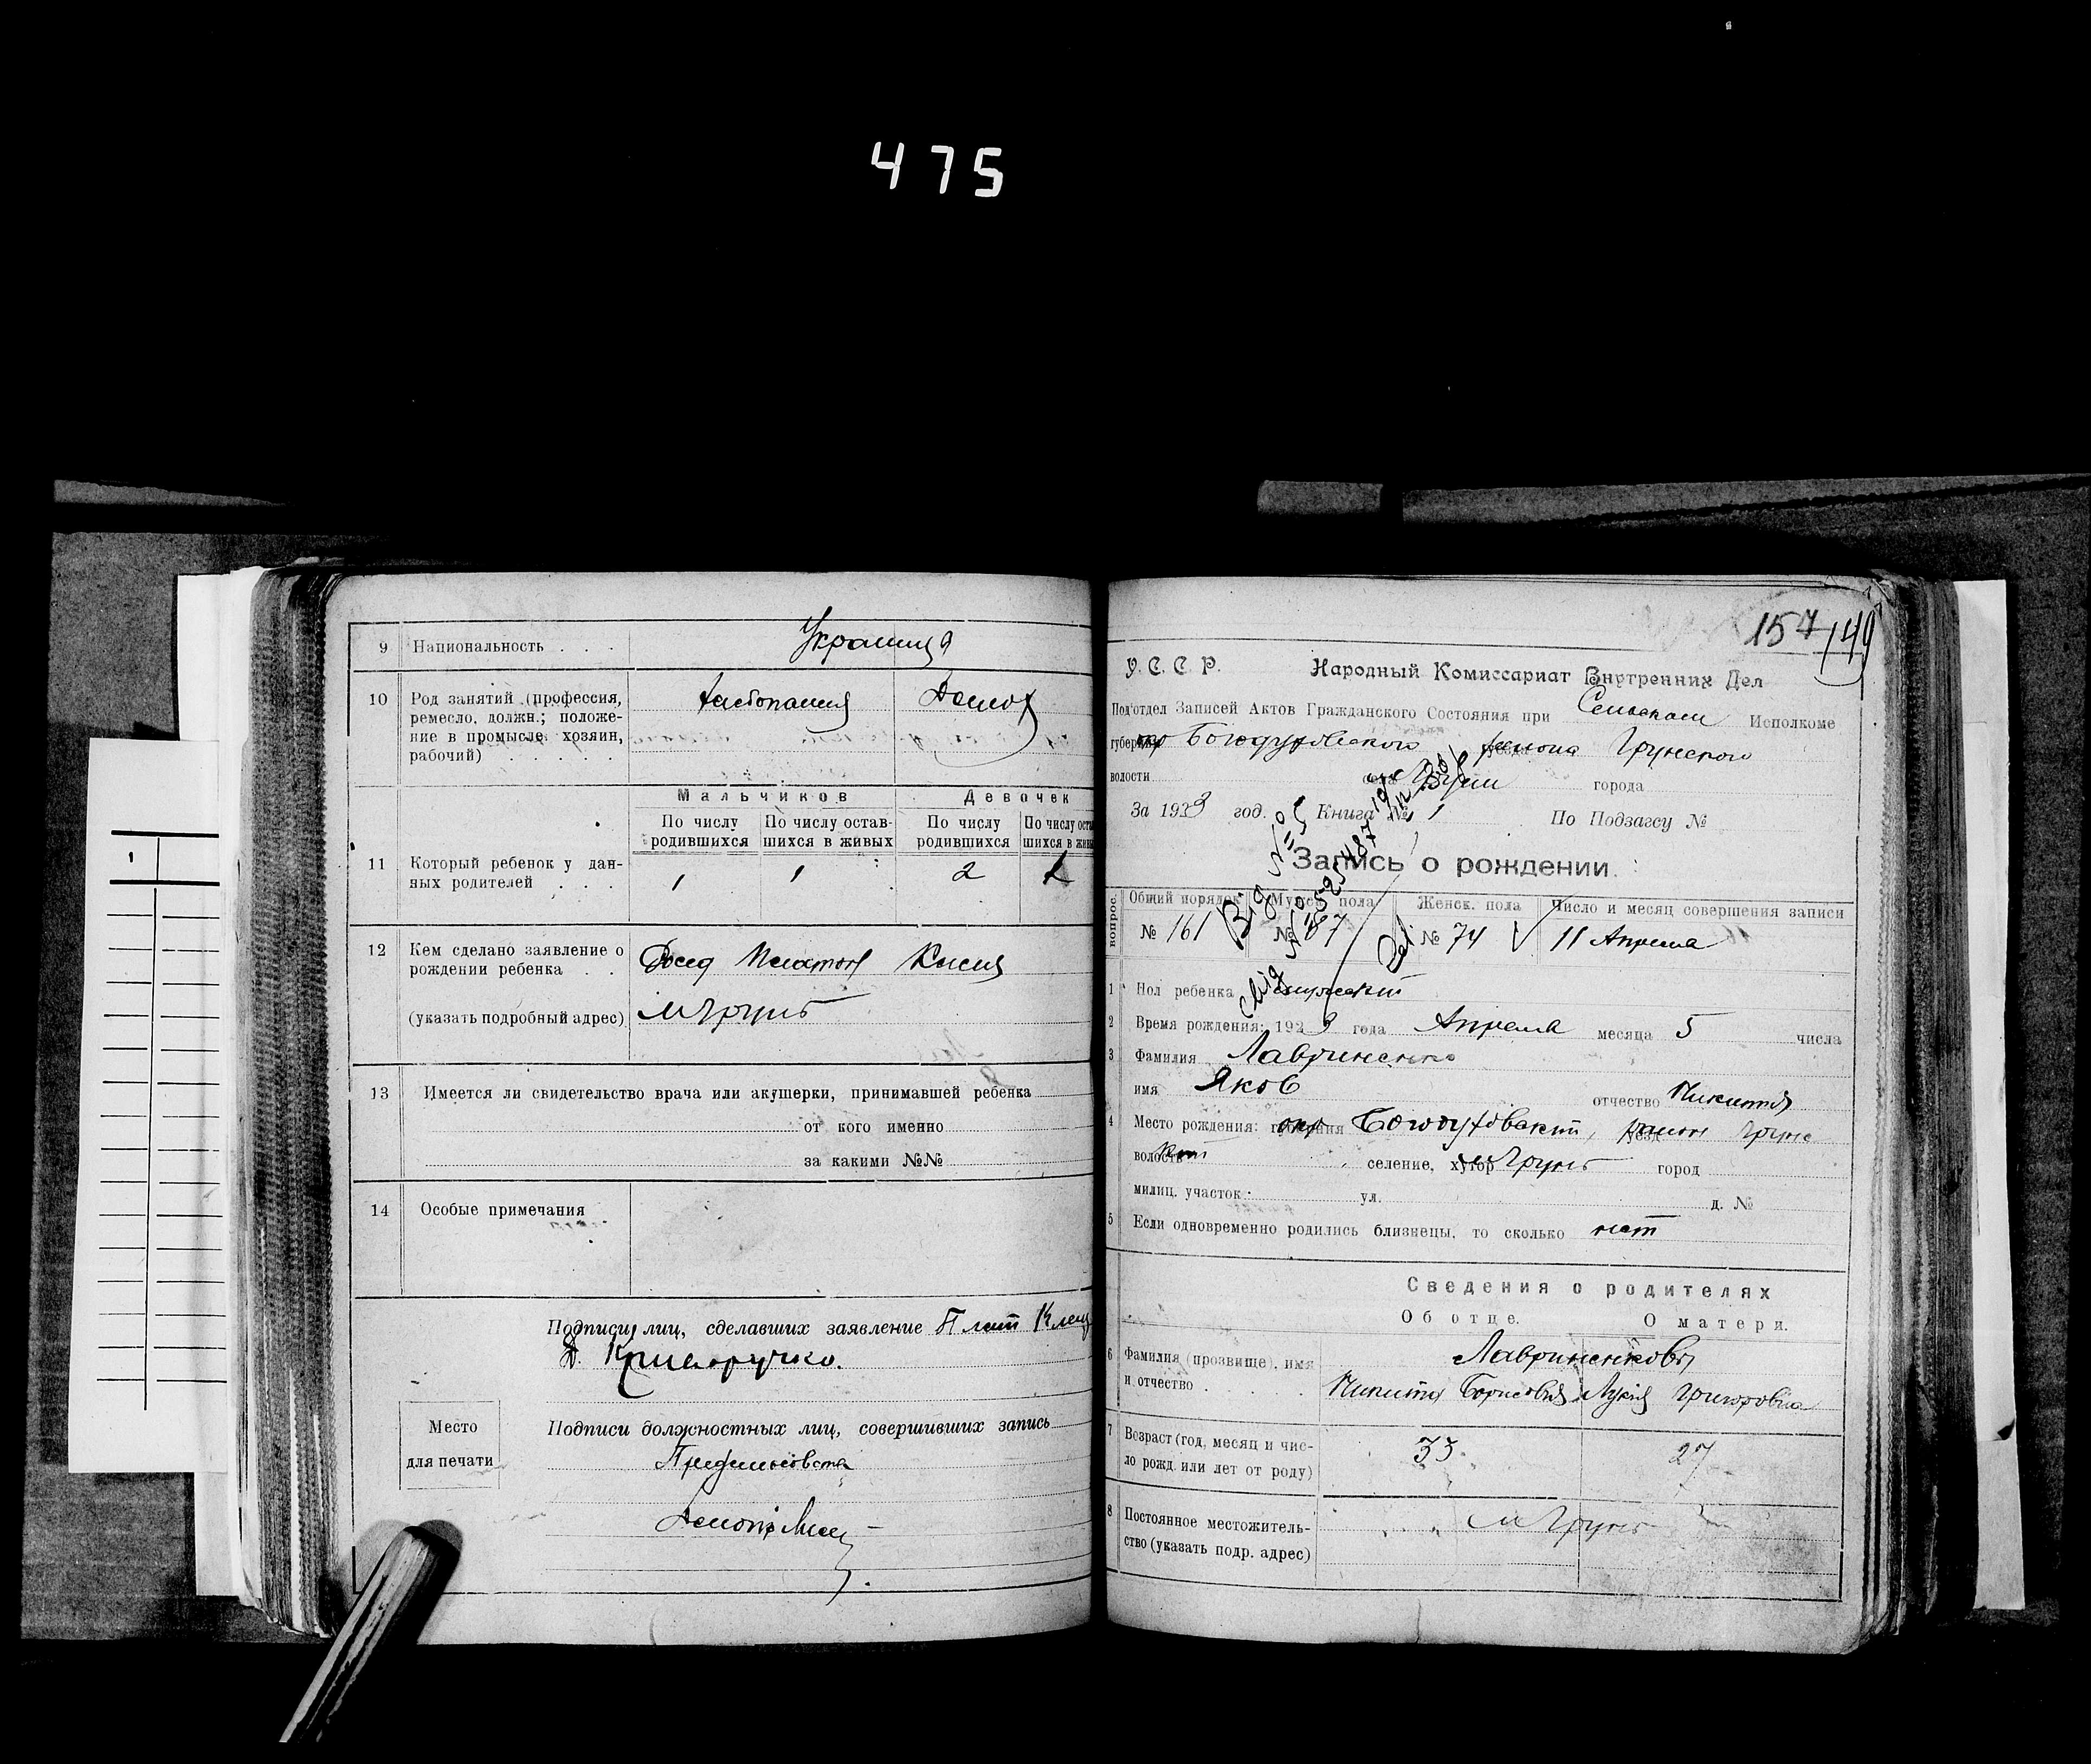 475
9 Национальность . . . Украинця
10 Род занятий (профессия,
ремесло, должн.; положе-
ние в промысле, хозяин,
рабочий) . . . . .
Мальчиков Девочек
По числу родившихся По числу остав-шихся в живых По числу родившихся По числу оста шихся в жив
11 Который ребенок у дан-
ных родителей . . . 1 1 2
12 Кем сделано заявление о
рождении ребенка . .
(указать подробный адрес) м Грунь
13 Имеется ли свидетельство врача или акушерки, принимавшей ребенка
от кого именно
за какими №№
14 Особые примечания
Подписи лиц, сделавших заявление
Д. Криворучко.
Место
для печати
Подписи должностных лиц, совершивших запись
157 149
У. С. С. Р. Народный Комиссариат Внутренних Дел
Под'отдел Записей Актов Гражданского Состояния при Сельском Исполкоме
губерн окр Богодуховского района Грунского
волости села Груни города
За 1923 год. Книга № 1 По Подзагсу №
Запись о рождении.
вопрос. Общий порядок Мужск. пола Женск. пола Число и месяц совершения записи
№ 161 № 87 № 74 11 Апреля
1 Пол ребенка мужский
2 Время рождения: 1923 года Апреля месяца 5 числа
3 Фамилия Лавриненко
имя Яков отчество Никитов
4 Место рождения: окр Богодуховский, район Грунс
волость кий селение, хутор м Грунь город
милиц. участок ул. д. №
5 Если одновременно родились близнецы, то сколько нет
Сведения о родителях
Об отце. О матери.
6 Фамилия (прозвище), имя Лавриненковы
и отчество . . . . . Никита Борисовия Лукия Григоровна
7 Возраст (год, месяц и чис-
ло рожд. или лет от роду) 33 27
8 Постоянное местожитель- м Грунь
ство (указать подр. адрес)